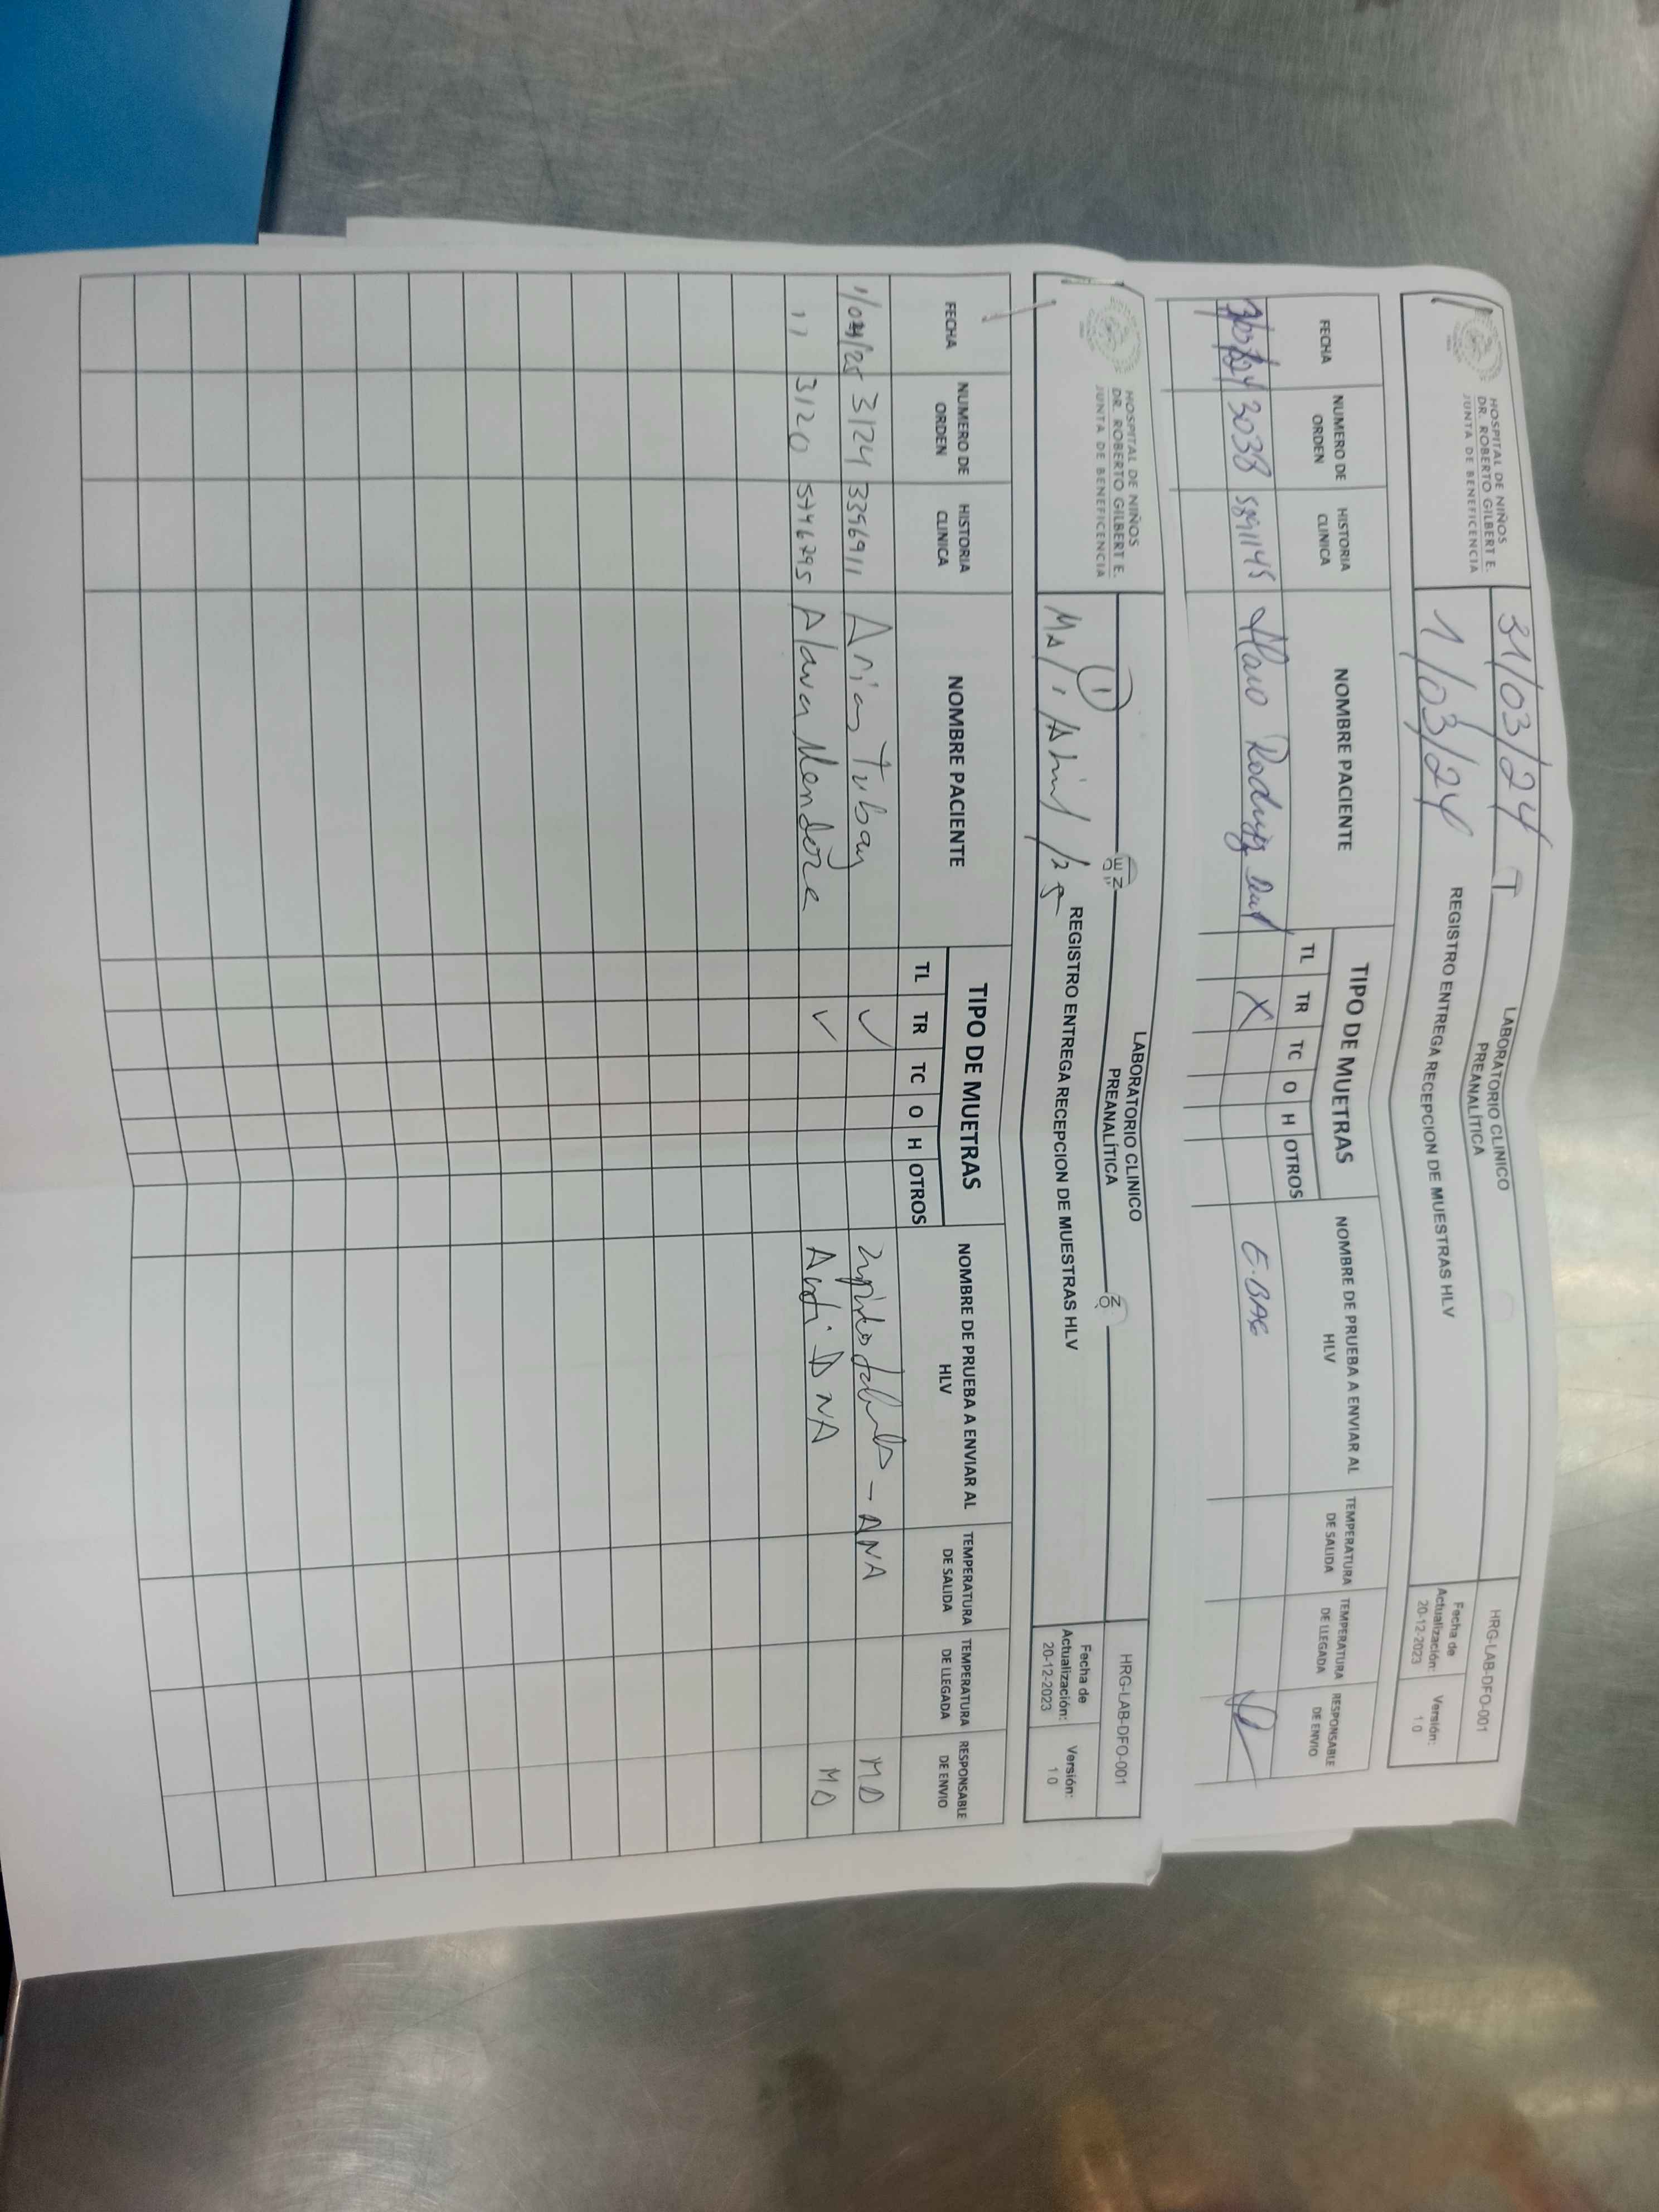 31/03/24 T
1/03/24
HOSPITAL DE NIÑOS
DR. ROBERTO GILBERT E.
JUNTA DE BENEFICENCIA
LABORATORIO CLINICO
PREANALÍTICA
REGISTRO ENTREGA RECEPCION DE MUESTRAS HLV
HRG-LAB-DFO-001
Fecha de Actualización: 20-12-2023
Versión: 1.0
FECHA NUMERO DE ORDEN HISTORIA CLINICA NOMBRE PACIENTE TIPO DE MUETRAS NOMBRE DE PRUEBA A ENVIAR AL HLV TEMPERATURA DE SALIDA TEMPERATURA DE LLEGADA RESPONSABLE DE ENVIO
TL TR TC O H OTROS
3038 5891145 X
HOSPITAL DE NIÑOS
DR. ROBERTO GILBERT E.
JUNTA DE BENEFICENCIA
1
LABORATORIO CLINICO
PREANALÍTICA
REGISTRO ENTREGA RECEPCION DE MUESTRAS HLV
HRG-LAB-DFO-001
Fecha de Actualización: 20-12-2023
Versión: 1.0
FECHA NUMERO DE ORDEN HISTORIA CLINICA NOMBRE PACIENTE TIPO DE MUETRAS NOMBRE DE PRUEBA A ENVIAR AL HLV TEMPERATURA DE SALIDA TEMPERATURA DE LLEGADA RESPONSABLE DE ENVIO
TL TR TC O H OTROS
3124 3396911 Arias Tubay ✓ - ANA MD
11 3120 5746795 Alava Mendoza ✓ Anti DNA MD